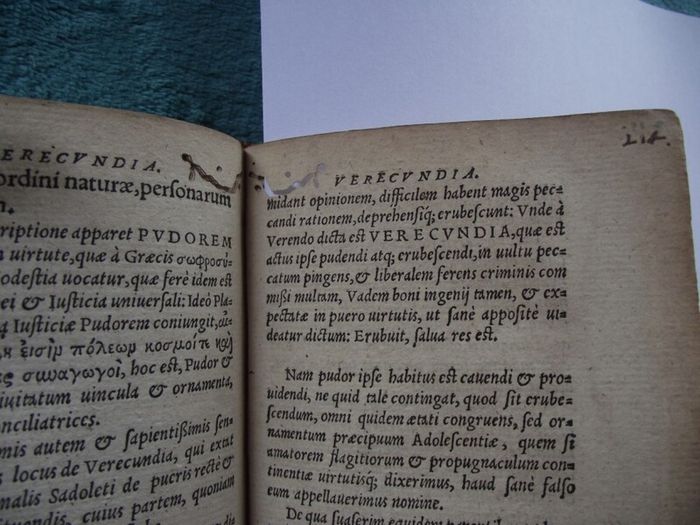 ERECVNDIA.
ordini naturæ, personarum
n.
criptione apparet PVDOREM
n uirtute, quæ à Græcis σωφροσύ-
odestia uocatur, quæ ferè idem est
ei & Iusticia uniuersali: Ideò Pla-
Iusticiæ Pudorem coniungit,
εἰσὶμ πόλεωμ κοσμοίτε καὶ
ας σωαγωγοὶ, hoc est, Pudor &
iuitatum uincula & ornamenta,
nciliatrices.
mis autem & sapientißimis sen-
s locus de Verecundia, qui extat
nalis Sadoleti de pueris rectè &
uendis, cuius partem, quoniam
VERECVNDIA.
214.
midant opinionem, difficilem habent magis pec-
candi rationem, deprehensiq́; erubescunt: Vnde à
Verendo dicta est VERECVNDIA, quæ est
actus ipse pudendi atq; erubescendi, in uultu pec-
catum pingens, & liberalem ferens criminis com
mißi multam, Vadem boni ingenij tamen, & ex-
pectatæ in puero uirtutis, ut sanè appositè ui-
deatur dictum: Erubuit, salua res est.
Nam pudor ipse habitus est cauendi & pro-
uidendi, ne quid tale contingat, quod sit erube-
scendum, omni quidem ætati congruens, sed or-
namentum præcipuum Adolescentiæ, quem si
amatorem flagitiorum & propugnaculum con-
timentiæ uirtutisq́; dixerimus, haud sanè falso
eum appellauerimus nomine.
De qua suaserim equidem